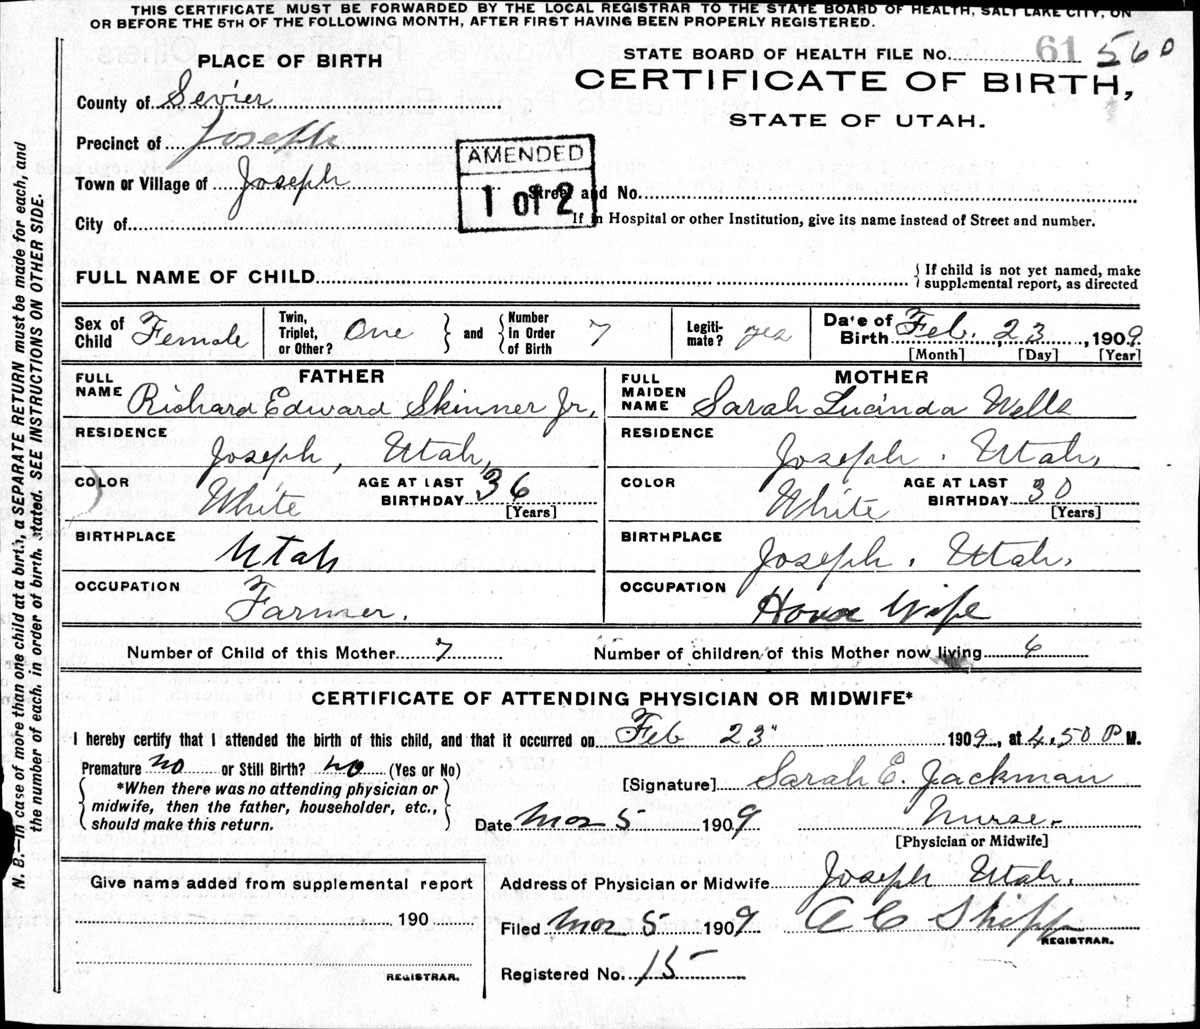 THIS CERTIFICATE MUST BE FORWARDED BY THE LOCAL REGISTRAR TO THE STATE BOARD OF HEALTH, SALT LAKE CITY, ON
OR BEFORE THE 5TH OF THE FOLLOWING MONTH, AFTER FIRST HAVING BEEN PROPERLY REGISTERED.
STATE BOARD OF HEALTH FILE No. 61 560
PLACE OF BIRTH
CERTIFICATE OF BIRTH,
STATE OF UTAH.
County of Sevier
Precinct of Joseph
AMENDED
1 of 2
Town or Village of Joseph Street and No.
City of If in Hospital or other Institution, give its name instead of Street and number.
FULL NAME OF CHILD { If child is not yet named, make
supplemental report, as directed
Sex of Child Female Twin, Triplet, or Other? One } and { Number in Order of Birth 7 Legiti-mate? yes Date of Birth Feb. 23, 1909
[Month] [Day] [Year]
FATHER MOTHER
FULL NAME Richard Edward Skinner Jr. FULL MAIDEN NAME Sarah Lucinda Wells
RESIDENCE Joseph, Utah, RESIDENCE Joseph, Utah,
COLOR White AGE AT LAST BIRTHDAY 36 [Years] COLOR White AGE AT LAST BIRTHDAY 30 [Years]
BIRTHPLACE Utah BIRTHPLACE Joseph, Utah.
OCCUPATION Farmer. OCCUPATION House Wife
Number of Child of this Mother 7 Number of children of this Mother now living 6
CERTIFICATE OF ATTENDING PHYSICIAN OR MIDWIFE*
I hereby certify that I attended the birth of this child, and that it occurred on Feb 23" 1909, at 4.50 P M.
Premature no or Still Birth? no (Yes or No)
[Signature] Sarah E. Jackman
{ *When there was no attending physician or
midwife, then the father, householder, etc.,
should make this return. }
Date Mar 5 1909 Nurse.
[Physician or Midwife]
Give name added from supplemental report
190
REGISTRAR.
Address of Physician or Midwife Joseph Utah.
Filed Mar 5 1909 A C Shipp
REGISTRAR.
Registered No. 15
N. B.—In case of more than one child at a birth, a SEPARATE RETURN must be made for each, and
the number of each, in order of birth, stated. SEE INSTRUCTIONS ON OTHER SIDE.